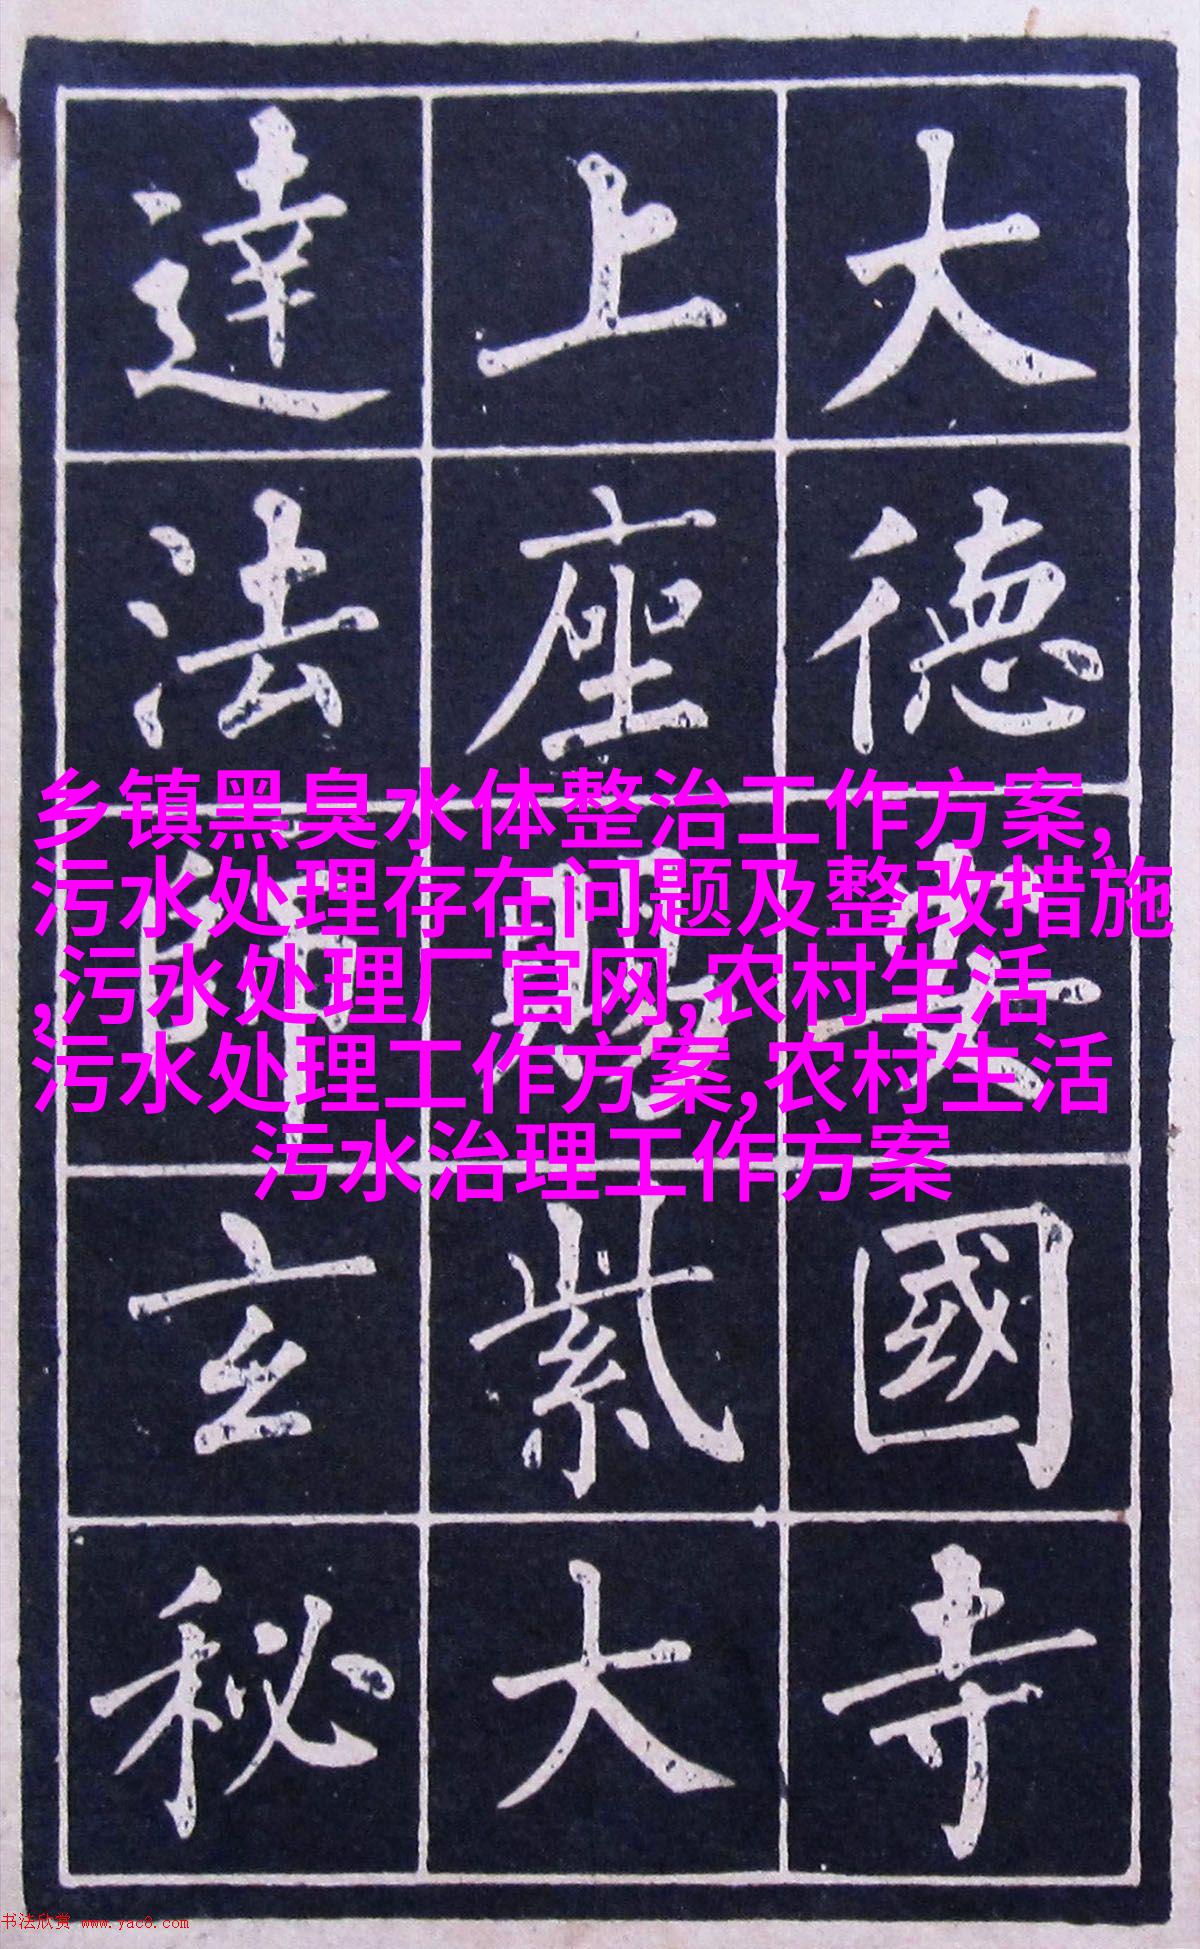 大德安國寺
上座賜紫大
達法師玄秘
乡镇黑臭水体整治工作方案,
污水处理存在问题及整改措施
,污水处理厂官网,农村生活
污水处理工作方案,农村生活
污水治理工作方案
书法欣赏 www.yac8.com